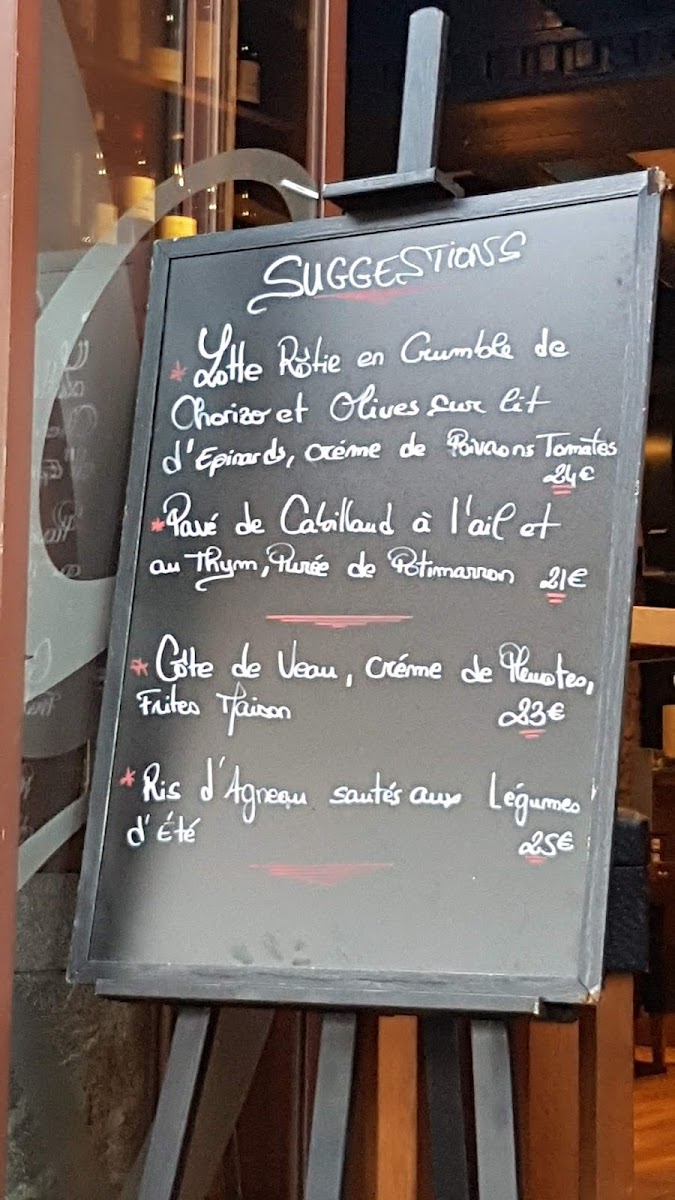 SUGGESTIONS
* Lotte Rôtie en Crumble de
Chorizo et Olives sur lit
d'Epinards, créme de Poivrons Tomates
24€
* Pavé de Cabillaud à l'ail et
au Thym, Purée de Potimarron 21€
* Côte de Veau, créme de Pleurotes,
Frites Maison 23€
* Ris d'Agneau sautés aux Légumes
d'Été 25€